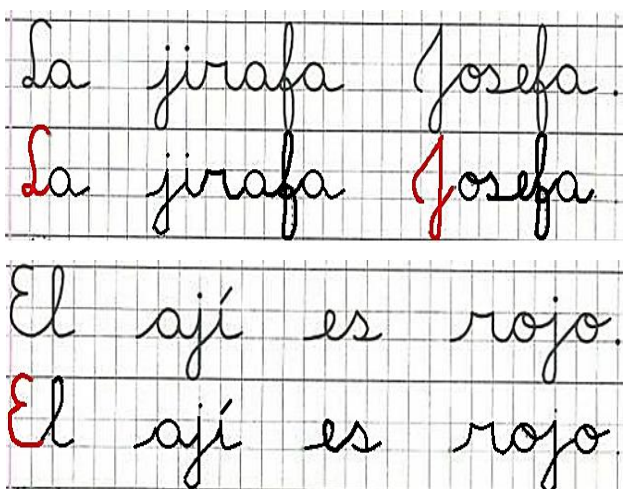 La jirafa Josefa.
La jirafa Josefa.
El ají es rojo.
El ají es rojo.